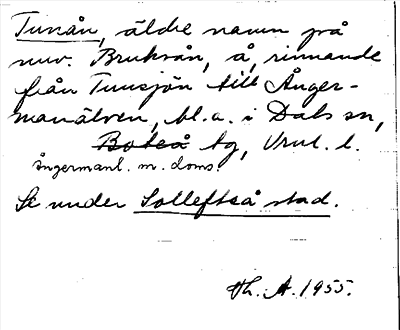 Tunån, äldre namn på
nuv. Bruksån, å, rinnande
från Tunsjön till Ånger-
manälven, bl.a. i Dals sn,
Boteå tg, Vrnl. l.
ångermanl. m. doms.
Se under Sollefteå stad.
Th. A. 1955.